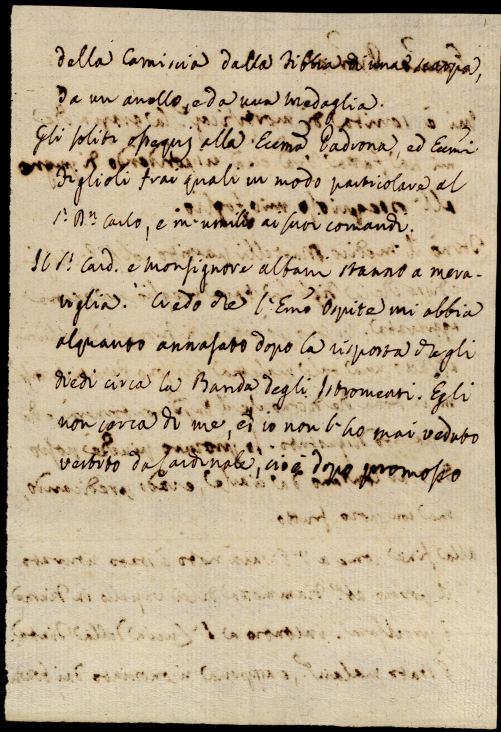 della Camiscia dalla Fibbia di una scarpa,
da un anello, e da una medaglia.
Gli soliti ossequj alla Ecc͞ma Padrona, ed Ecc͞mi
Figlioli frai quali in modo particolare al
S.r B.n Carlo, e m'umilio ai suoi comandi.
Il S.r Card. e Monsignore Albani stanno a mera-
viglia. Credo che l'Em͞o Ospite mi abbia
alquanto annasato dopo la risposta che gli
diedi circa la Banda degli Istromenti. Egli
non cerca di me, ed io non l'ho mai veduto
vestito da Cardinale, cioè dopo promosso